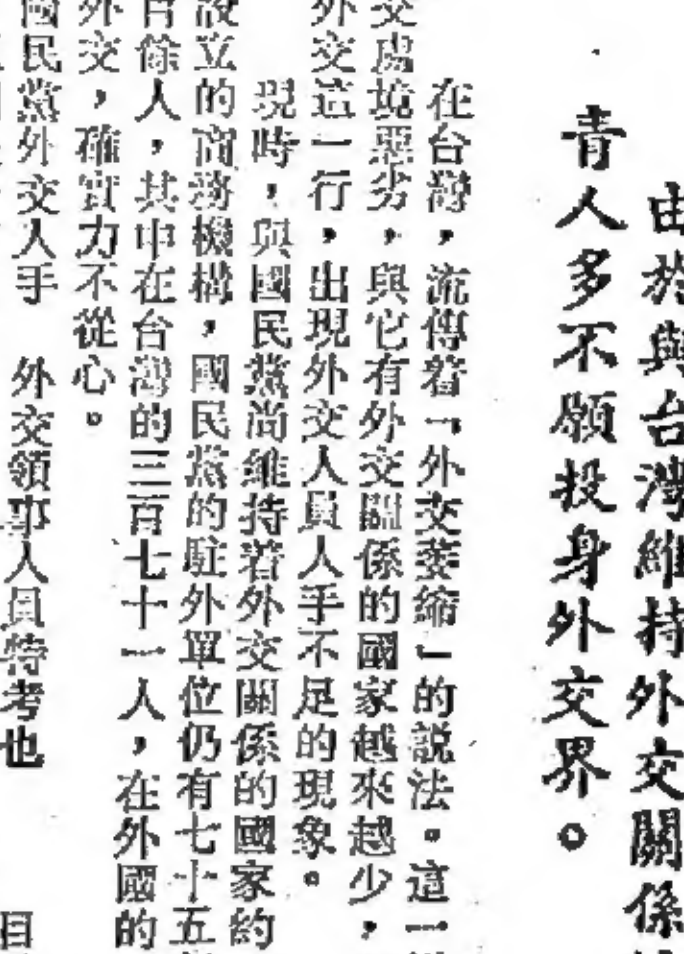 由於與台灣維持外交關係
青人多不願投身外交界。
在台灣，流傳着「外交萎縮」的說法。這一
交處境惡劣，與它有外交關係的國家越來越少，
外交這一行，出現外交人員人手不足的現象。
現時，與國民黨尚維持着外交關係的國家約
設立的商務機構，國民黨的駐外單位仍有七十五
百餘人，其中在台灣的三百七十一人，在外國的
外交，確實力不從心。
國民黨外交人手 外交領事人員特考也
目